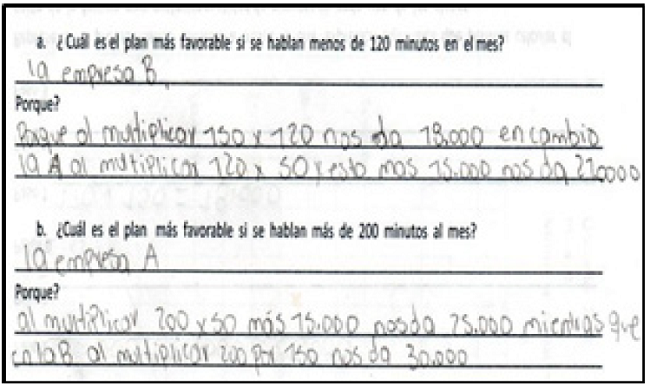 a. ¿Cuál es el plan más favorable si se hablan menos de 120 minutos en el mes?
la empresa B.
Porque?
Porque al multiplicar 150 x 120 nos da 18.000 en cambio
la A al multiplicar 120 x 50 y esto mas 15.000 nos da 210000
b. ¿Cuál es el plan más favorable si se hablan más de 200 minutos al mes?
la empresa A
Porque?
al multiplicar 200 x 50 más 15.000 nos da 25.000 mientras que
en la B al multiplicar 200 por 150 nos da 30.000